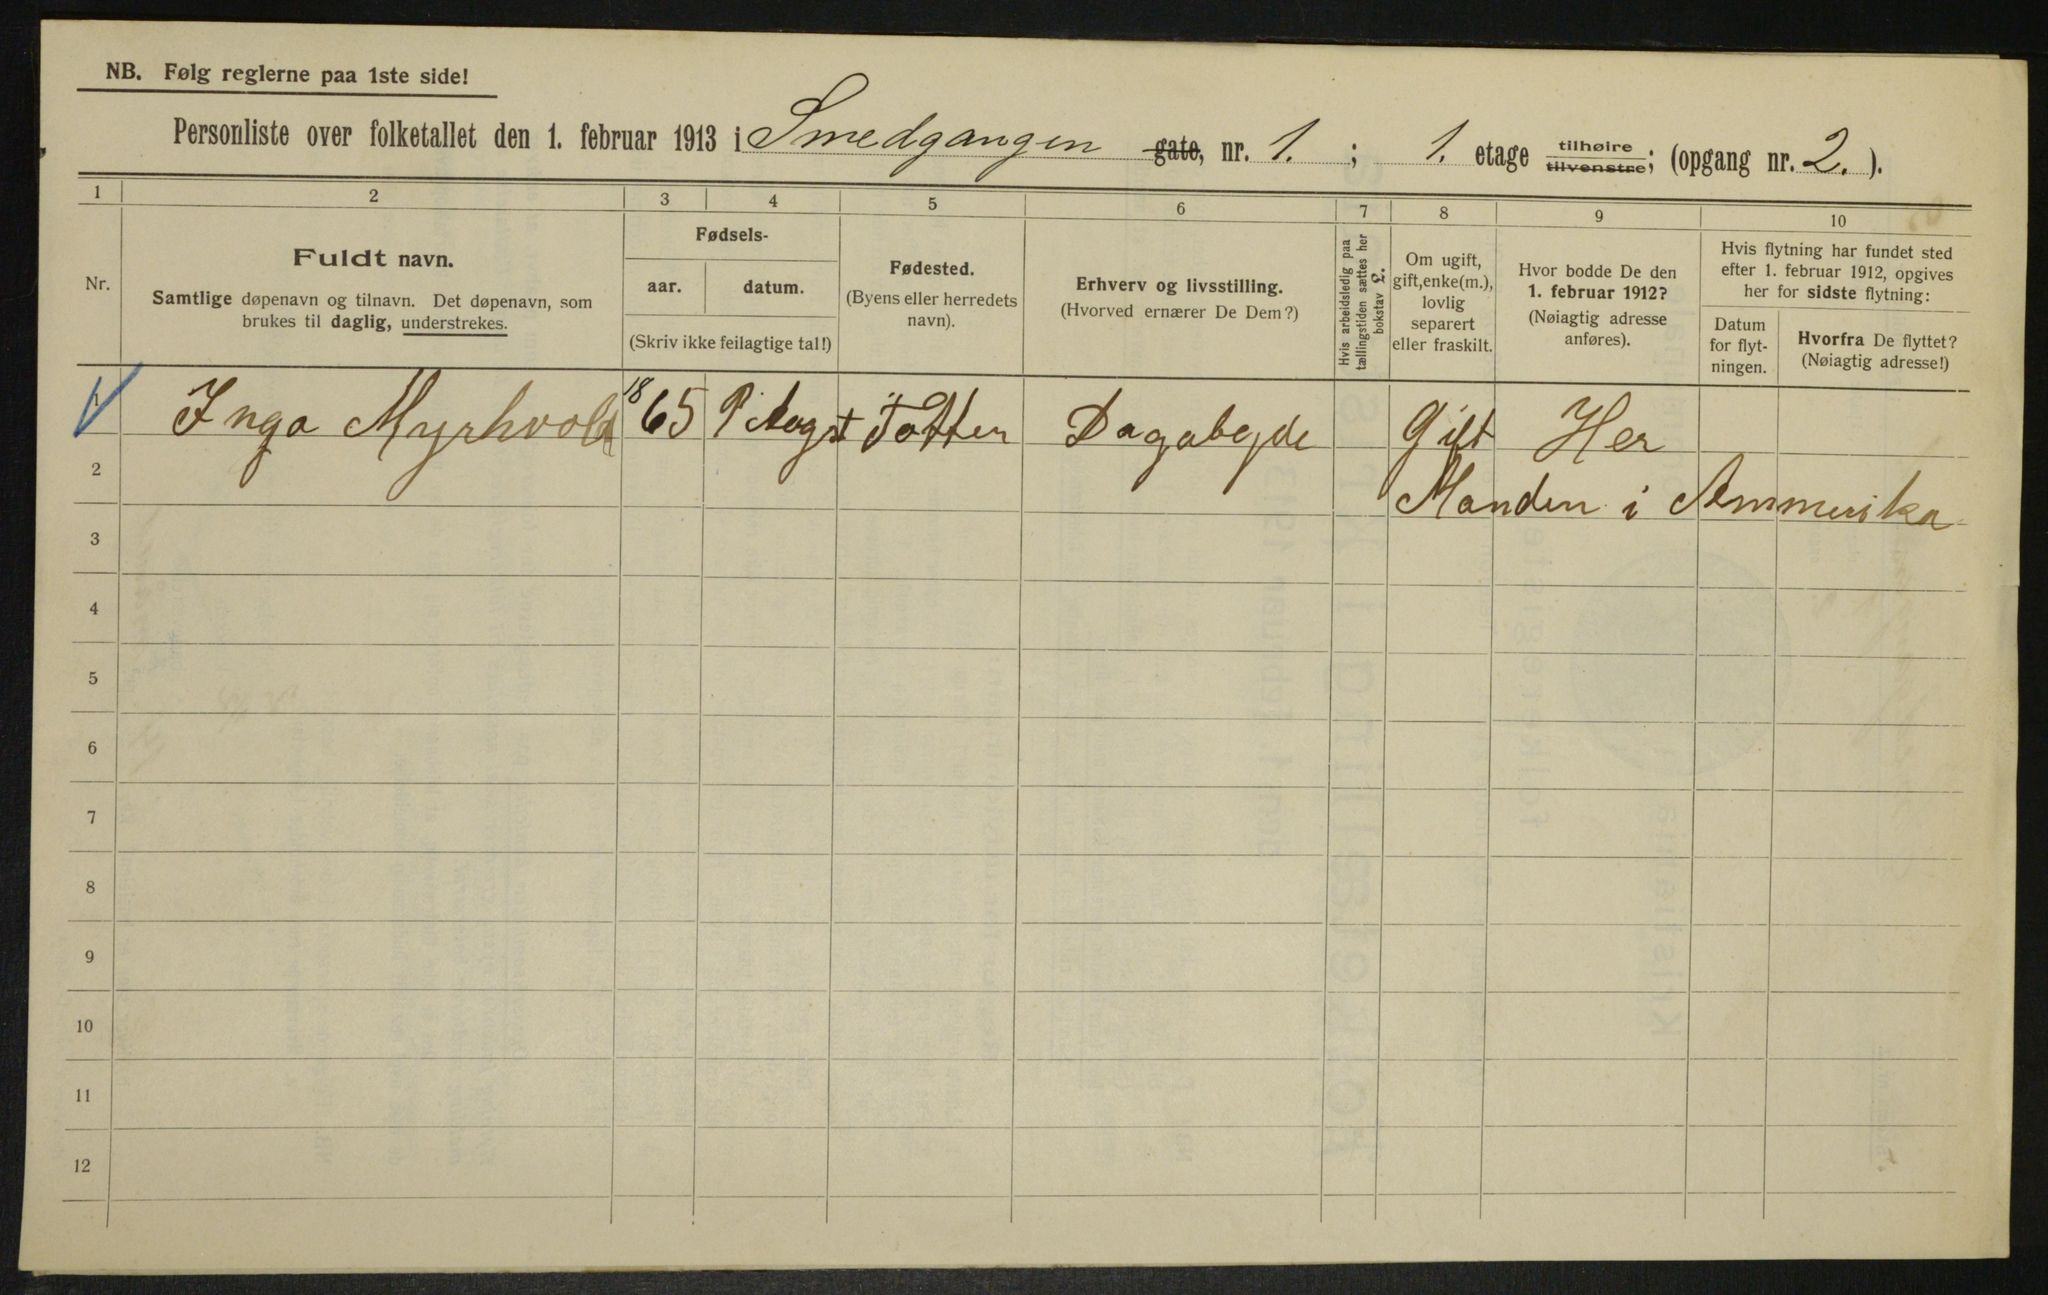 NB. Følg reglerne paa 1ste side!
Personliste over folketallet den 1. februar 1913 i Smedgangen gate, nr. 1. ; 1. etage tilhøire tilvenstre; (opgang nr. 2. ).
1 2 3 4 5 6 7 8 9 10
Nr.
Fuldt navn.
Samtlige døpenavn og tilnavn. Det døpenavn, som
brukes til daglig, understrekes.
Fødsels-
aar. datum.
(Skriv ikke feilagtige tal!)
Fødested.
(Byens eller herredets
navn).
Erhverv og livsstilling.
(Hvorved ernærer De Dem?)
Hvis arbeidsledig paa
tællingstiden sættes her
bokstav L.
Om ugift,
gift, enke(m.),
lovlig
separert
eller fraskilt.
Hvor bodde De den
1. februar 1912?
(Nøiagtig adresse
anføres).
Hvis flytning har fundet sted
efter 1. februar 1912, opgives
her for sidste flytning:
Datum
for flyt-
ningen.
Hvorfra De flyttet?
(Nøiagtig adresse!)
1 Inga Myrhvold 1865 Totten Dagabejde Gift Her
2 Manden i Ammerika
3
4
5
6
7
8
9
10
11
12